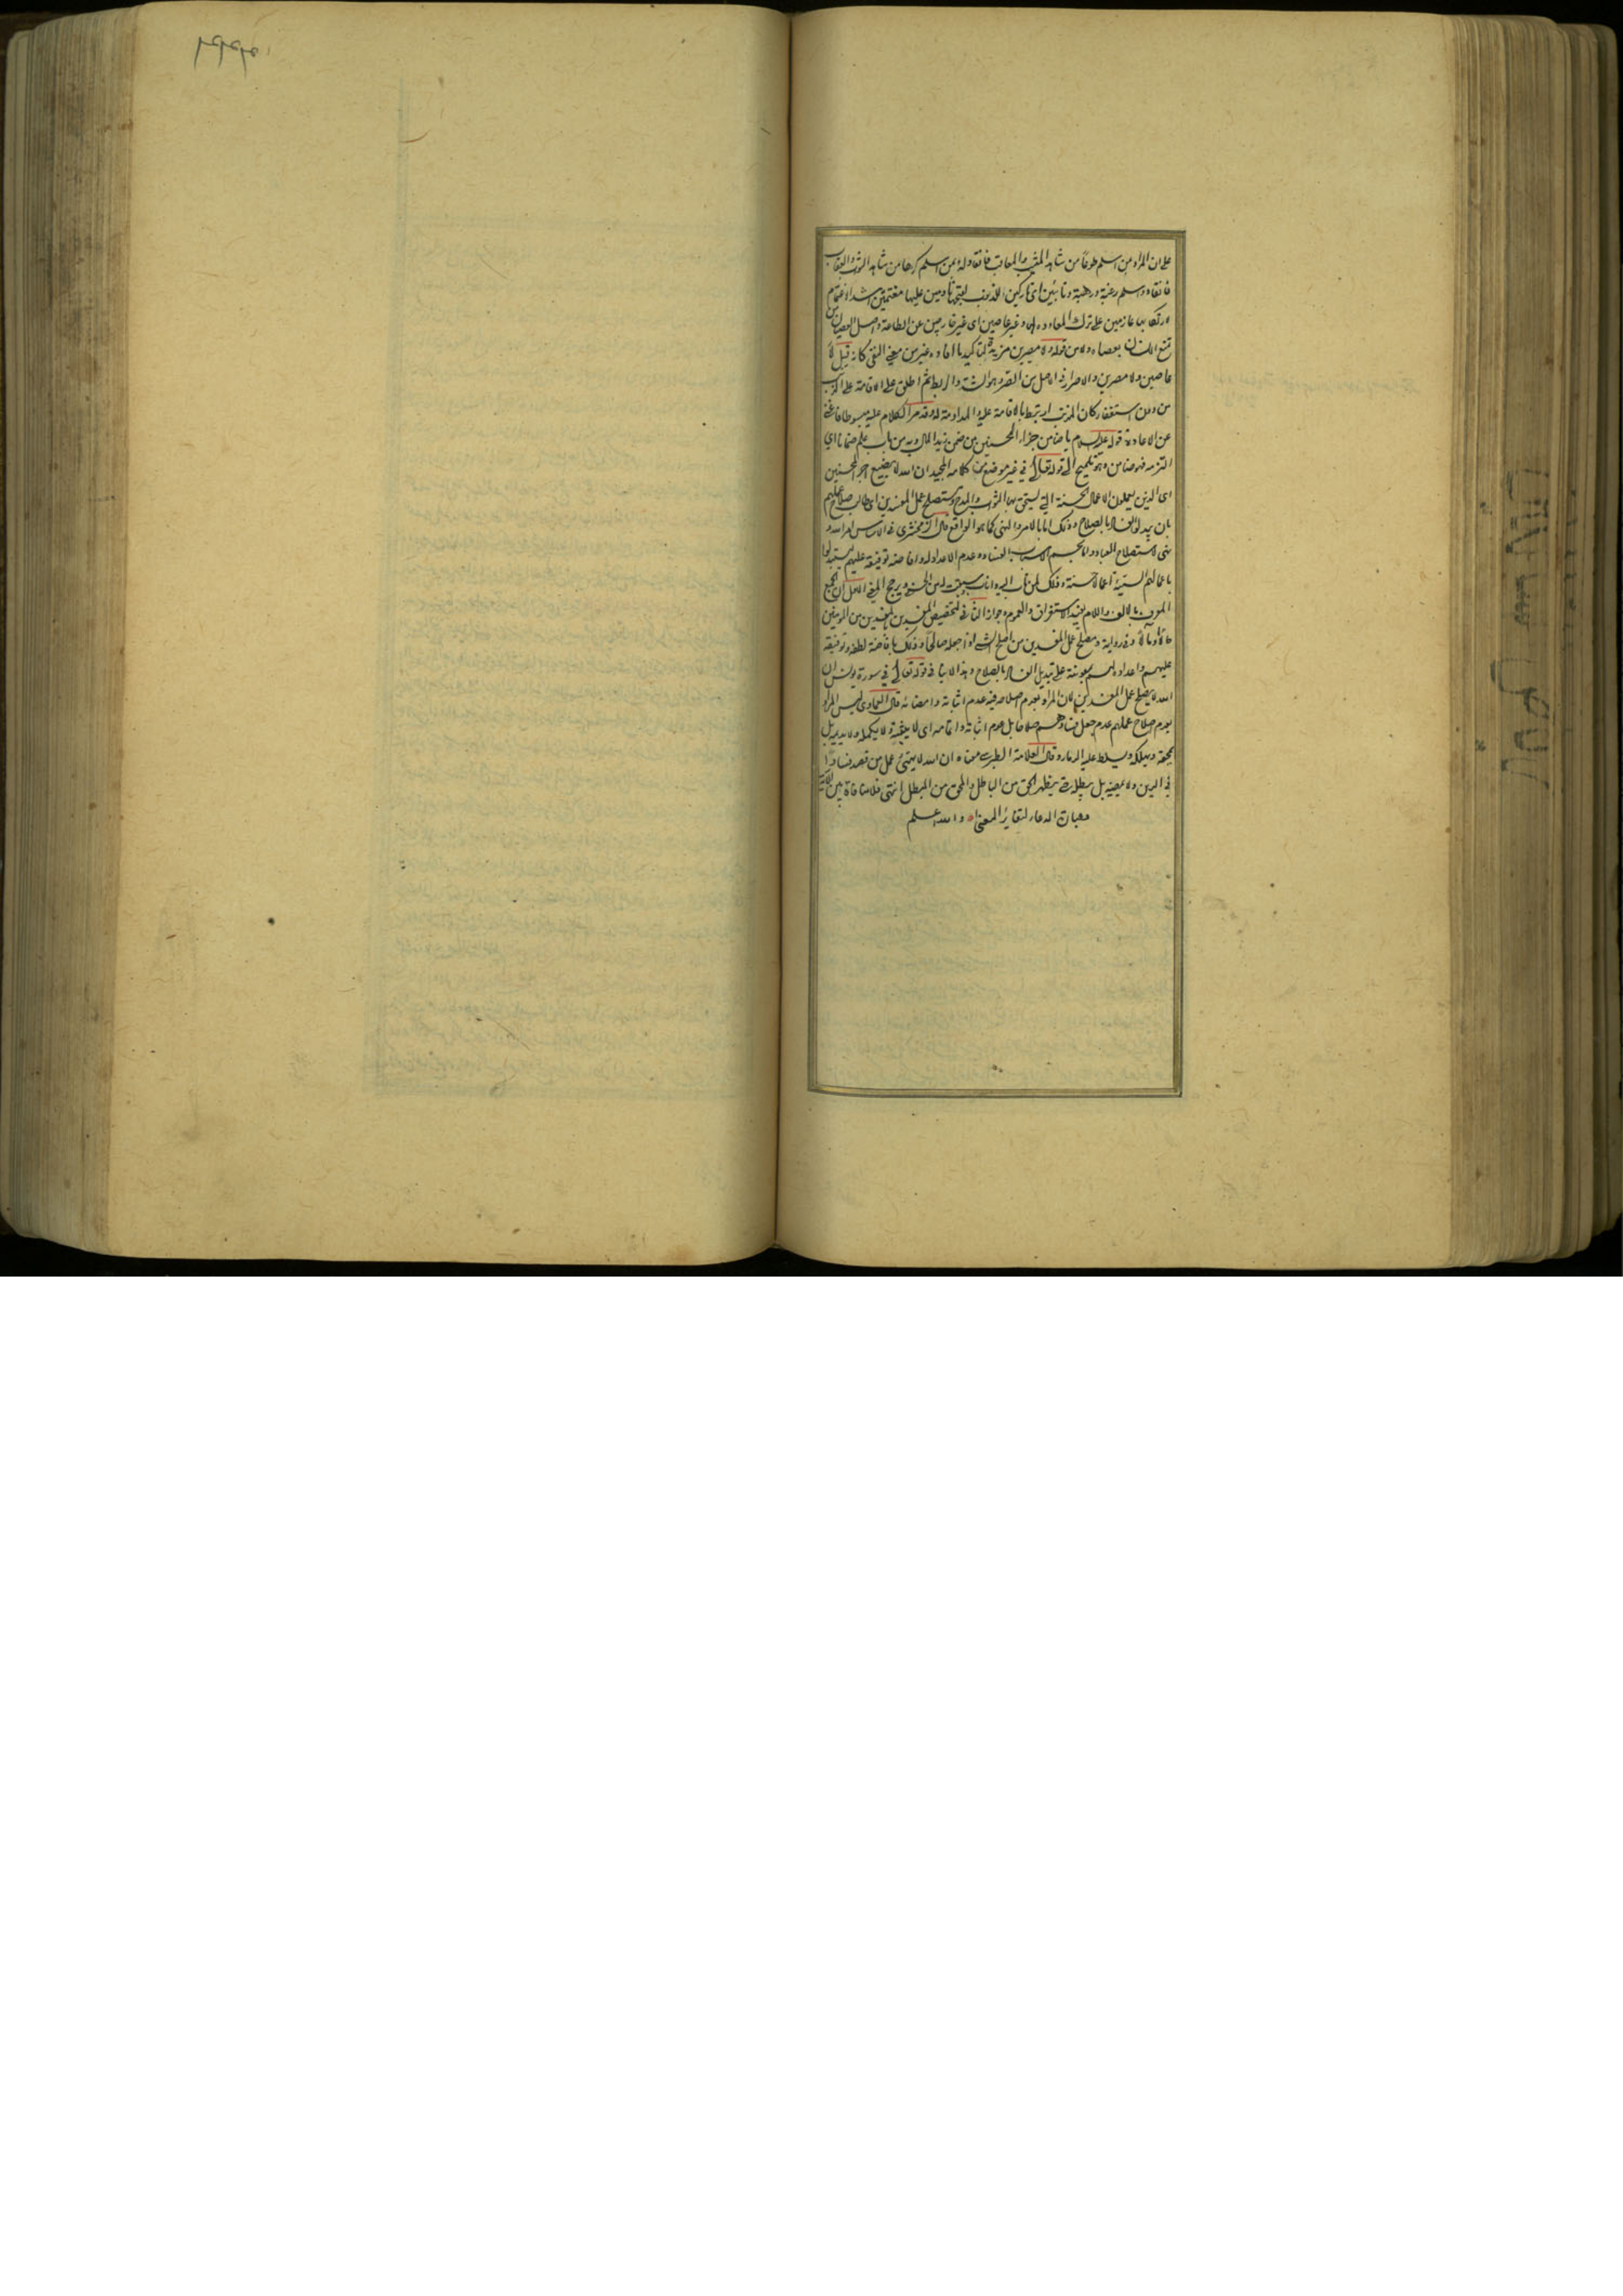 على ان المراد من اسلم طوعا من شاهد المثيب والمعاقب فانقاد له ومن اسلم كرها من شاهد الثواب والعقاب
فانقاد واسلم رغبة ورهبة وتائبين اى تاركين للذنوب لقبحها نادمين عليها مغتمين اشد الاغتمام
لارتكابها عازمين على ترك المعاودة لها وغير عاصين اى غير خارجين عن الطاعة واصل العصيان من
تمنع الانسان بعصاه ولا من قوله ولا مصرين مزيدة لتاكيد ما افاده غير من معنى النفى كانه قيل لا
عاصين ولا مصرين والاصرار فى الاصل من الصر وهو الشد والربط ثم اطلق على الاقامة على الذنب
من دون استغفار كان المذنب ارتبط بالاقامة عليه والمداومة له وقد مر الكلام عليه مبسوطا فاغنى
عن الاعادة قوله عليه السلام يا ضامن جزاء المحسنين من ضمن زيد المال وبه من باب علم ضمانا اي
التزمه فهو ضامن وهو تلميح الى قوله تعالى في غير موضع من كلامه المجيد ان الله لا يضيع اجر المحسنين
اى الذين يعملون الاعمال الحسنة التي يستحق بها الثواب والمدح ومستصلح عمل المفسدين اى طالب صلاح عملهم
بان يبدلوا الفساد بالصلاح وذلك اما بالامر والنهى كما هو الواقع قال الزمخشرى فى الاساس امر الله و
نهى لاستصلاح العباد والحسم لاسباب الفساد وعدم الاعداد له وافاضة توفيقه عليهم ليستبدلوا
باعمالهم السيئة اعمالا حسنة وذلك لمن تاب اليه واناب وسبقت له من الحسنى ويرجح المعنى الاول ان الجمع
المعرف بالالف واللام يفيد الاستغراق والعموم وجواز الثانى لتخصيص المفسدين بالمفسدين من المؤمنين
حالا ومآلا وفى رواية ومصلح عمل المفسدين من اصلح الشيء اذا جعله صالحا وذلك بافاضة لطفه وتوفيقه
عليهم واعداده لهم بمعونته على تبديل الفساد بالصلاح وهذا لا ينافى قوله تعالى في سورة يونس ان
الله لا يصلح عمل المفسدين لان المراد بعدم اصلاحه فيه عدم اثباته وامضائه قال العمادى ليس المراد
بعدم اصلاح عملهم عدم جعل فسادهم صلاحا بل عدم اثباته واتمامه اى لا يثبته ولا يكمله ولا يديمه بل
يمحقه ويهلكه ويسلط عليه الدمار وقال العلامة الطبرسى معناه ان الله لا يهيئ عمل من قصد فسادا
في الدين ولا يمضيه بل يبطله حتى يظهر الحق من الباطل والمحق من المبطل انتهى فلا منافاة بين الآية
وعبارة الدعاء لتغاير المعنيين والله اعلم